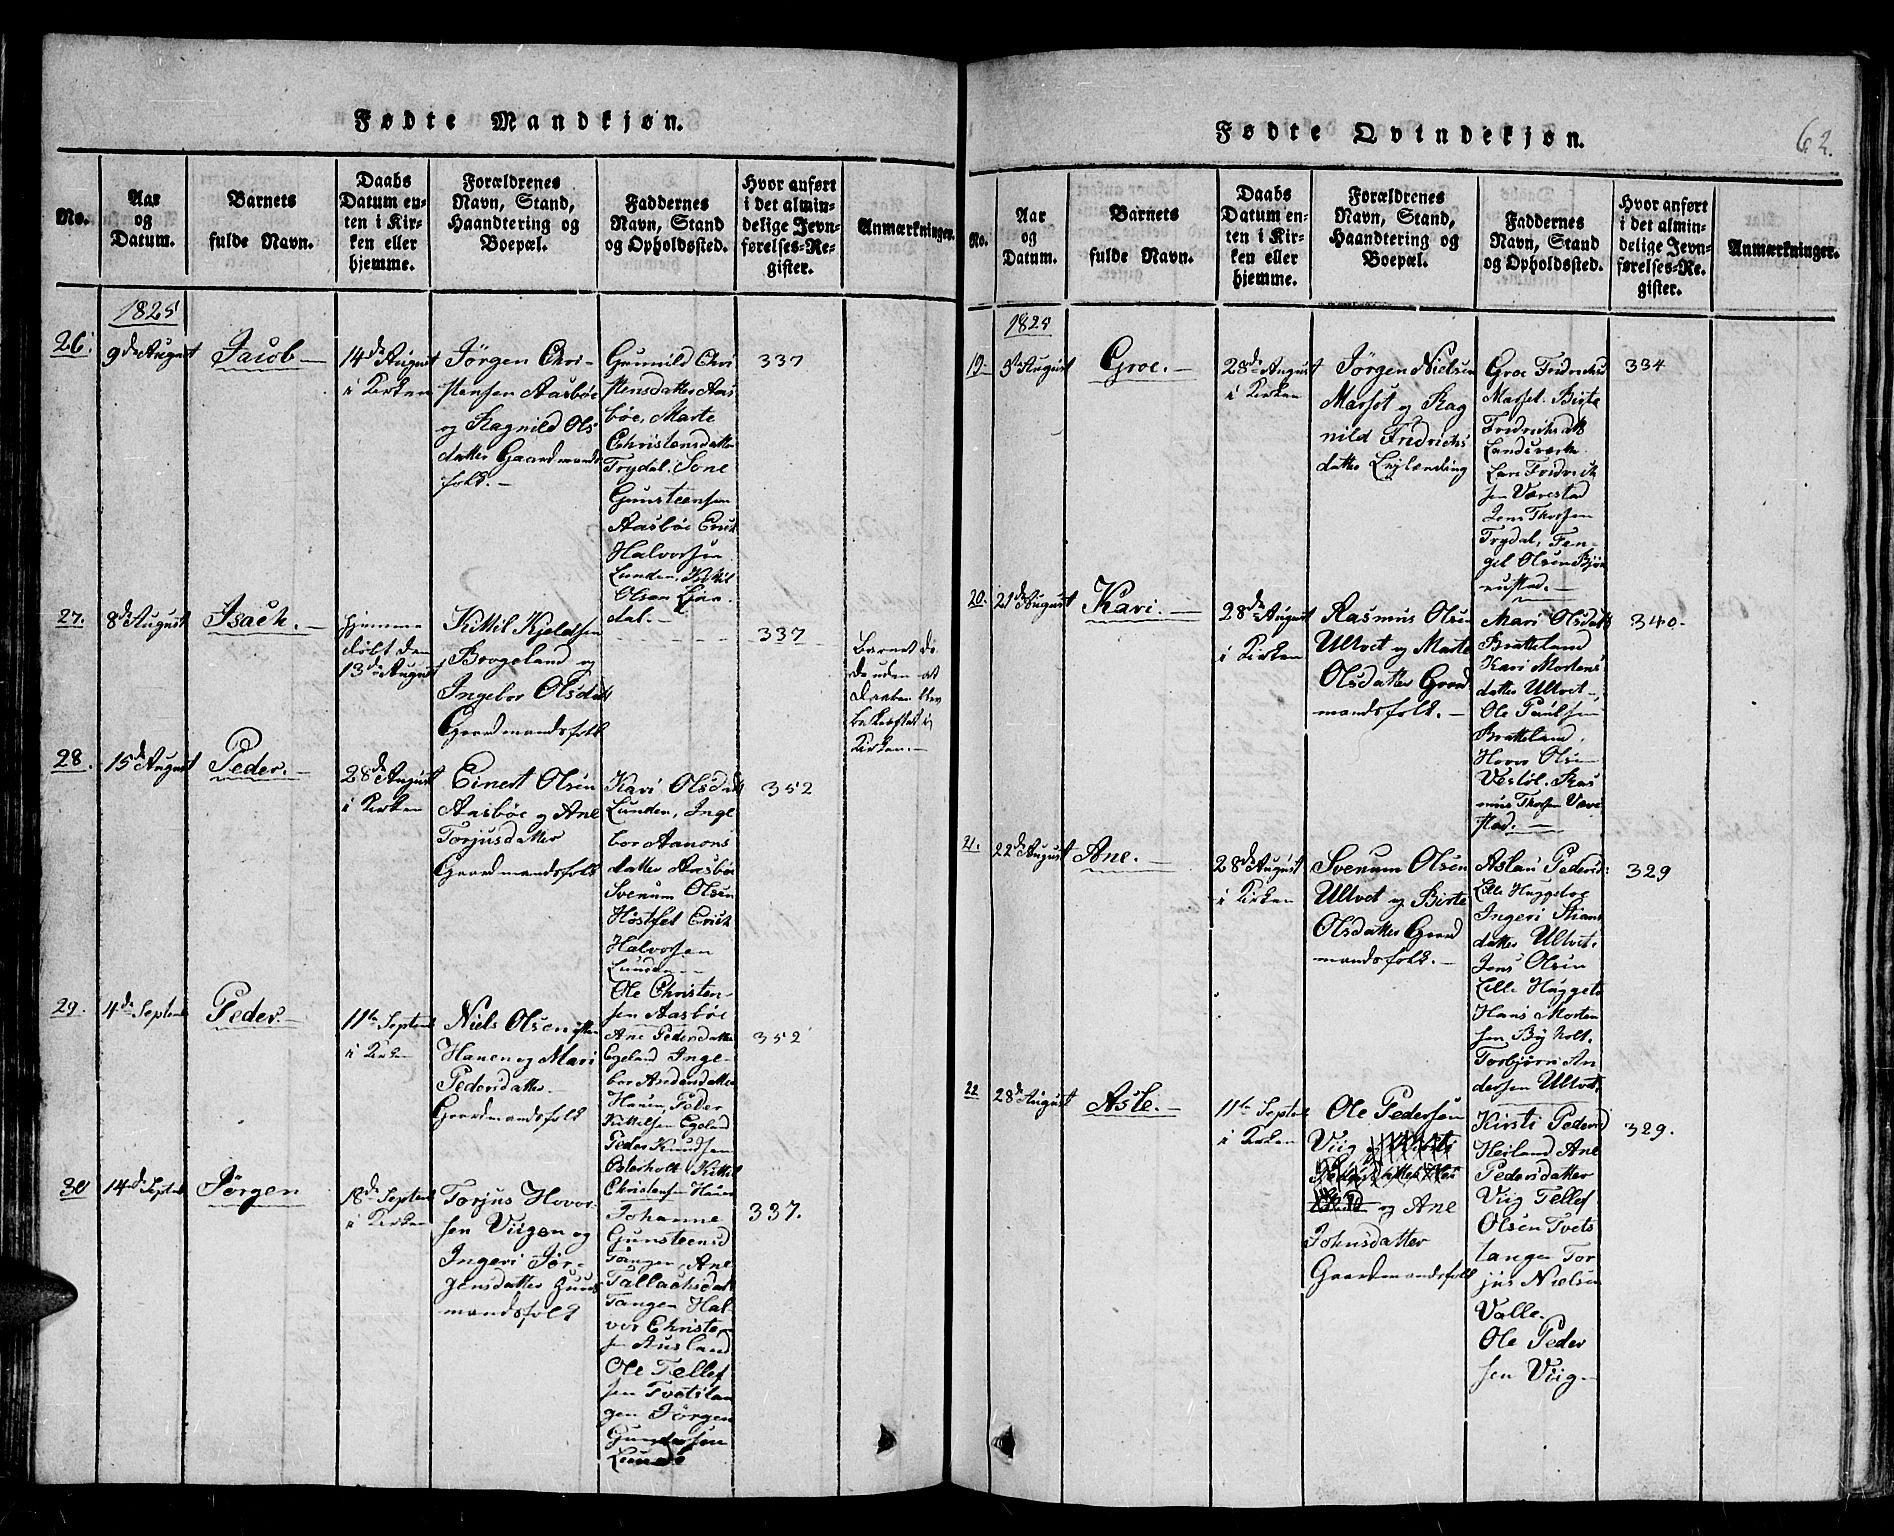 Fødte Mandkjøn.
No.
Aar
og
Datum.
Barnets
fulde Navn.
Daabs
Datum en-
ten i Kir-
ken eller
hjemme.
Forældrenes
Navn, Stand,
Haandtering og
Boepæl.
Faddernes
Navn, Stand
og Opholdssted.
Hvor anført
i det almin-
delige Jevn-
førelses-Re-
gister.
Anmærkninger.
1825
26.
9de August
Jacob
14de August
i Kirken
Jörgen Chri-
stensen Aasböe
og Ragnild Ols
datter Gaardmands
folk.
Gunnild Chri
stensdatter Aas
böe, Marte
Christensdatter
Trydal. Sone
Gunsteensen
Aasböe Erich
Halvorsen
Lunden, Kittil
Olsen
dal.
337
27.
8de August
Isach.
Hjemme
döbt den
13de August
Kittil Kjeldsen
Borgeland og
Ingebor Olsdatt
Gaardmandsfolk
337
Barnet
döde uden at
Daaben blev
bekræftet i
Kirken.
28.
15de August
Peder.
28de August
i Kirken
Einert Olsen
Aasböe og Ane
Torjusdatter
Gaardmandsfolk
Kari Olsdatt
Lunden, Inge
bor Aanons
datter Aasböe
Svenum Olsen
Höstfet Erich
Halvorsen
Lunden
Ole Christen-
sen Aasböe
352
29.
4de Septemb
Peder.
11te Septemb
i Kirken
Niels Olsen
Hauen og Mari
Pedersdatter
Gaardmandsfolk
Ane Pedersdatter
Egeland Inge-
bor Andersdatter
Hauen, Peder
Kittilsen Egeland
Peder Knudsen
Osterholt, Kittil
Christensen Hauen
352
30
14de Septemb
Jörgen
18de Septemb
i Kirken
Torjus Hovor
sen Viigen og
Ingeri Jör-
gensdatter Huus
mandsfolk
Johanne
Gunsteensd
Tangen, Ane
Tallachsdatt
Tangen Hal-
vor Christen
sen Ausland
Ole Tellef
sen Tvetslan
gen Jörgen
Gundersen
Lunde
337.
Fødte Qvindekjøn.
62.
No.
Aar
og
Datum.
Barnets
fulde Navn.
Daabs
Datum en-
ten i Kir-
ken eller
hjemme.
Forældrenes
Navn, Stand,
Haandtering og
Boepæl.
Faddernes
Navn, Stand
og Opholdssted.
Hvor anført
i det almin-
delige Jevn-
førelses-Re-
gister.
Anmærkninger.
1825
19.
5te August
Groe.
28de August
i Kirken
Jörgen Nielsen
Massöt og Rag
nild Fredrichs
datter Leylænding
Groe Fredrichsd
Masset. Birte
Fredrichsdatt
Landsværk.
Lars Fredrich
sen Værestad
Jens Thorsen
Trydal, Ten-
gel Olsen Björ
nustad.
334
20.
21de August
Kari.
28de August
i Kirken
Rasmus Olsen
Ultvet og Marte
Olsdatter Gaard
mandsfolk.
Mari Olsdatt
Bratteland
Kari Mortens
datter Ultvet,
Ole Paulsen
Bratteland,
Hovor Olsen
Vestöl. Ras
mus Thorsen Være
stad.
340.
21.
22de August
Ane.
28de August
i Kirken
Svenum Olsen
Ultvet og Birte
Olsdatter Gaard
mandsfolk.
Aslau Pedersd
Lille Huggeboe
Ingeri Stians
datter Ultvet.
Jens Olsen
Lille Huggebo
Hans Morten
sen Byholt.
Torbjörn An
dersen Ultvet,
329
22
28de August
Asle.
11te Septemb
i Kirken
Ole Pedersen
Viig
og Ane
Johnsdatter
Gaardmandsfolk
Kirsti Pedersd
Heiland Ane
Pedersdatter
Viig Tellef
Olsen Tvets
langen Tor
jus Nielsen
Valle.
Ole Peder
sen Viig
329.